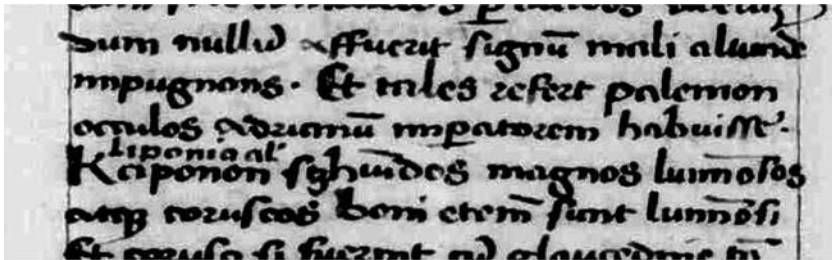 dum nullū affuerit signū mali aliunde
impugnans. Et tales refert palemon
occulos adrianū imperatorem habuisse.
liponia al'
Raiponon magnos luminosos
atqꝫ coruscos boni etem̄ sunt lumīosi
Et corusci si fuerint cū glaucedine